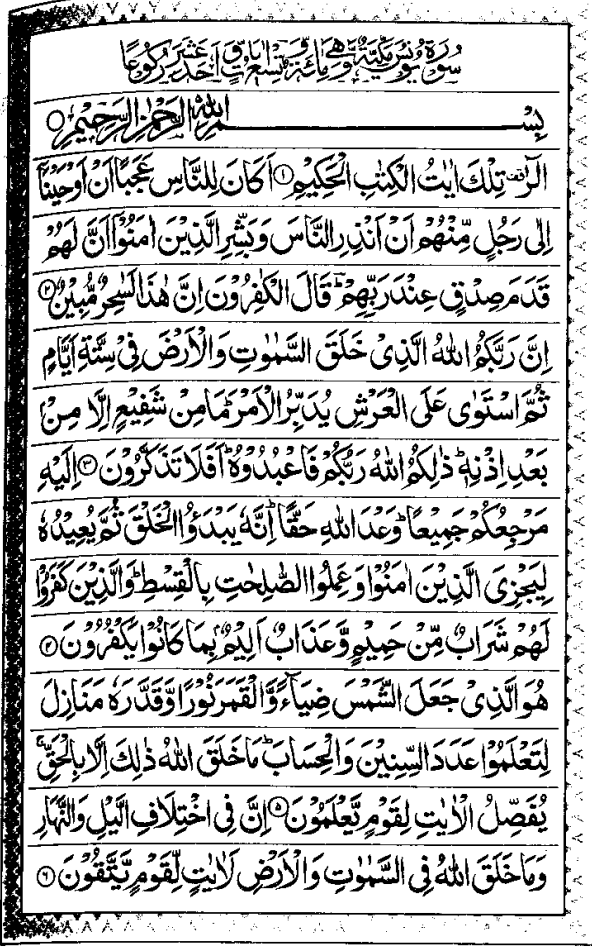 سُوْرَةُ يُوْنُسَ مَكِّيَّةٌ وَّهِيَ مِائَةٌ وَّتِسْعُ اٰيَاتٍ وَّاَحَدَ عَشَرَ رُكُوْعًا
بِسْمِ اللّٰهِ الرَّحْمٰنِ الرَّحِيْمِ ○
الٓرٰ ۫ تِلْكَ اٰيٰتُ الْكِتٰبِ الْحَكِيْمِ ۝۱ اَكَانَ لِلنَّاسِ عَجَبًا اَنْ اَوْحَيْنَاۤ
اِلٰى رَجُلٍ مِّنْهُمْ اَنْ اَنْذِرِ النَّاسَ وَبَشِّرِ الَّذِيْنَ اٰمَنُوْۤا اَنَّ لَهُمْ
قَدَمَ صِدْقٍ عِنْدَ رَبِّهِمْ ؔؕ قَالَ الْكٰفِرُوْنَ اِنَّ هٰذَا لَسٰحِرٌ مُّبِيْنٌ ۝۲
اِنَّ رَبَّكُمُ اللّٰهُ الَّذِيْ خَلَقَ السَّمٰوٰتِ وَالْاَرْضَ فِيْ سِتَّةِ اَيَّامٍ
ثُمَّ اسْتَوٰى عَلَى الْعَرْشِ يُدَبِّرُ الْاَمْرَ ؕ مَا مِنْ شَفِيْعٍ اِلَّا مِنْۢ
بَعْدِ اِذْنِهٖ ؕ ذٰلِكُمُ اللّٰهُ رَبُّكُمْ فَاعْبُدُوْهُ ؕ اَفَلَا تَذَكَّرُوْنَ ۝۳ اِلَيْهِ
مَرْجِعُكُمْ جَمِيْعًا ؕ وَعْدَ اللّٰهِ حَقًّا ؕ اِنَّهٗ يَبْدَؤُا الْخَلْقَ ثُمَّ يُعِيْدُهٗ
لِيَجْزِيَ الَّذِيْنَ اٰمَنُوْا وَعَمِلُوا الصّٰلِحٰتِ بِالْقِسْطِ ؕ وَالَّذِيْنَ كَفَرُوْا
لَهُمْ شَرَابٌ مِّنْ حَمِيْمٍ وَّعَذَابٌ اَلِيْمٌۢ بِمَا كَانُوْا يَكْفُرُوْنَ ۝۴
هُوَ الَّذِيْ جَعَلَ الشَّمْسَ ضِيَآءً وَّالْقَمَرَ نُوْرًا وَّقَدَّرَهٗ مَنَازِلَ
لِتَعْلَمُوْا عَدَدَ السِّنِيْنَ وَالْحِسَابَ ؕ مَا خَلَقَ اللّٰهُ ذٰلِكَ اِلَّا بِالْحَقِّ ۚ
يُفَصِّلُ الْاٰيٰتِ لِقَوْمٍ يَّعْلَمُوْنَ ۝۵ اِنَّ فِي اخْتِلَافِ الَّيْلِ وَالنَّهَارِ
وَمَا خَلَقَ اللّٰهُ فِي السَّمٰوٰتِ وَالْاَرْضِ لَاٰيٰتٍ لِّقَوْمٍ يَّتَّقُوْنَ ۝۶